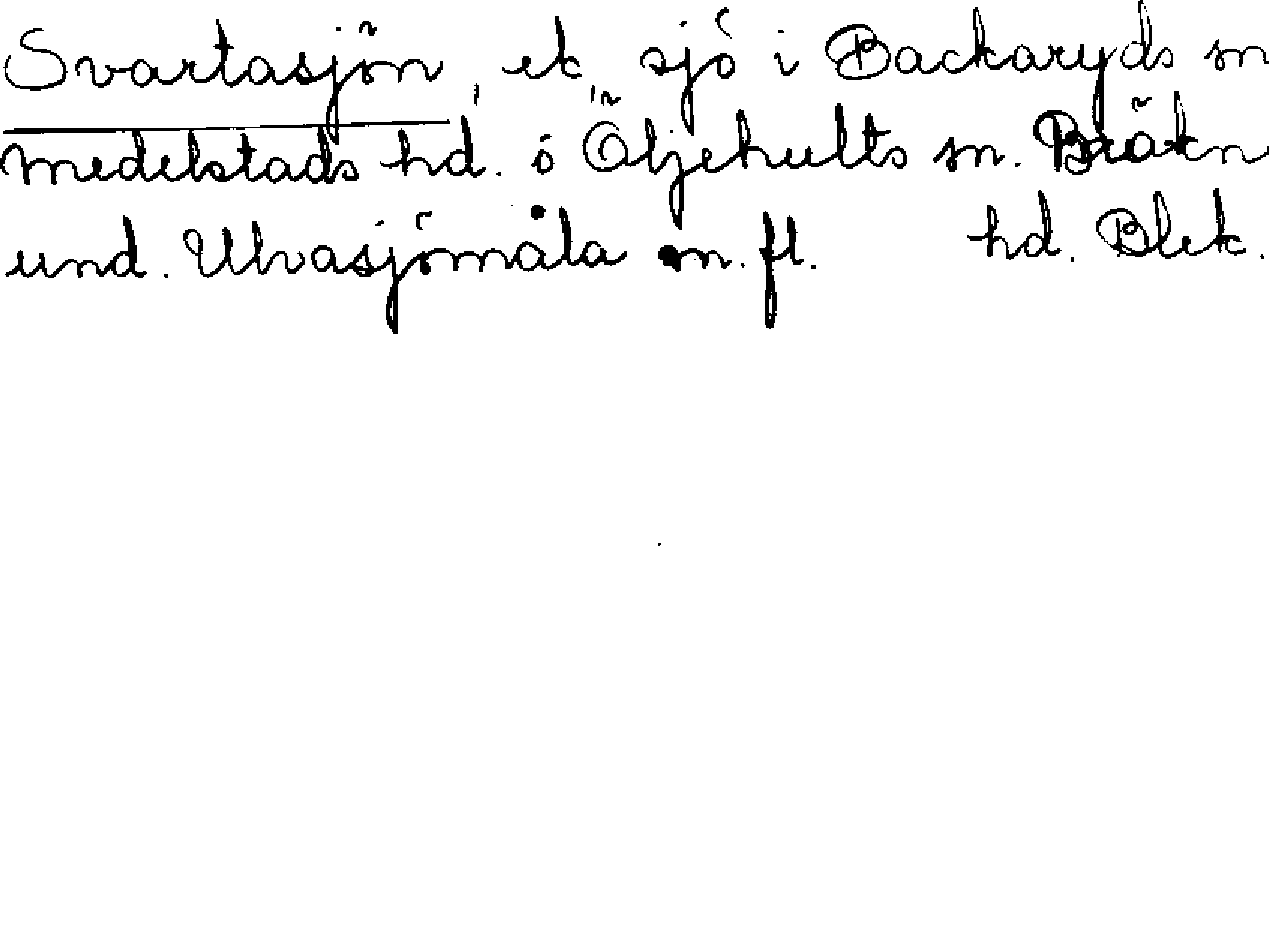 Svartasjön, ek. sjö i Backaryds sn
Medelstads hd. ö Öljehults sn. Bräkn
und. Ulvasjömåla m. fl. hd. Blek.